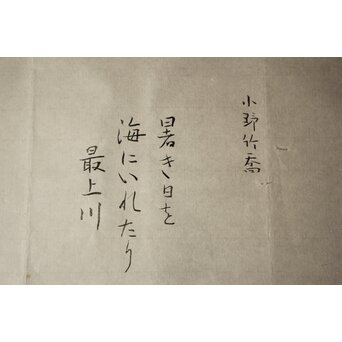 小野竹喬
暑き日を
海にいれたり
最上川